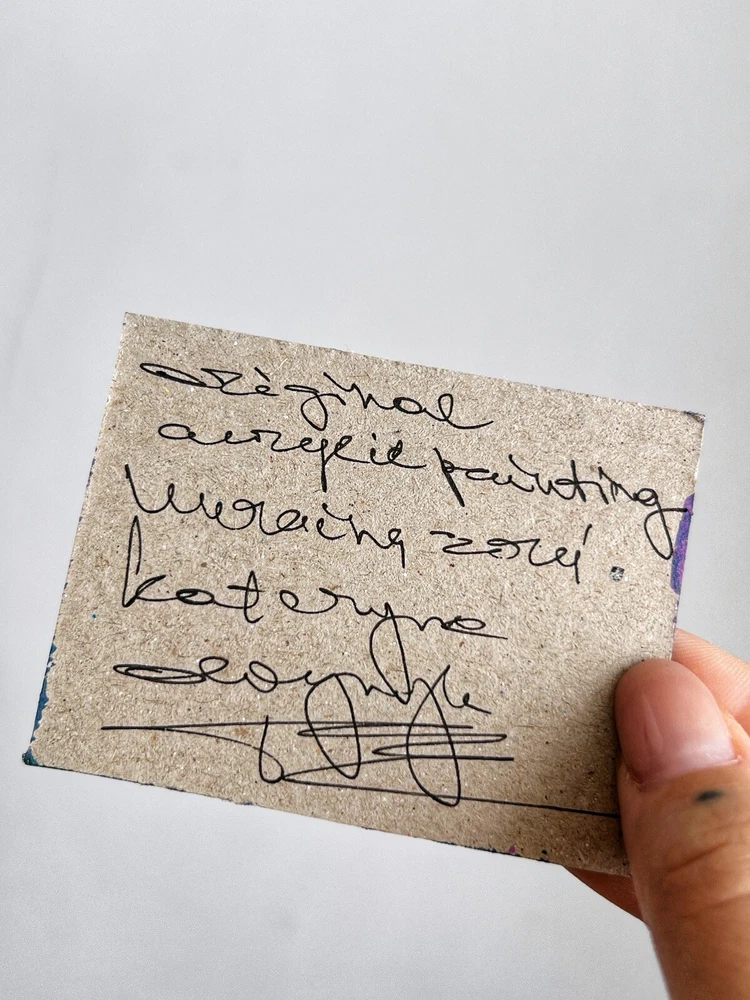 original
acrylic painting
Ukraine
Kateryna